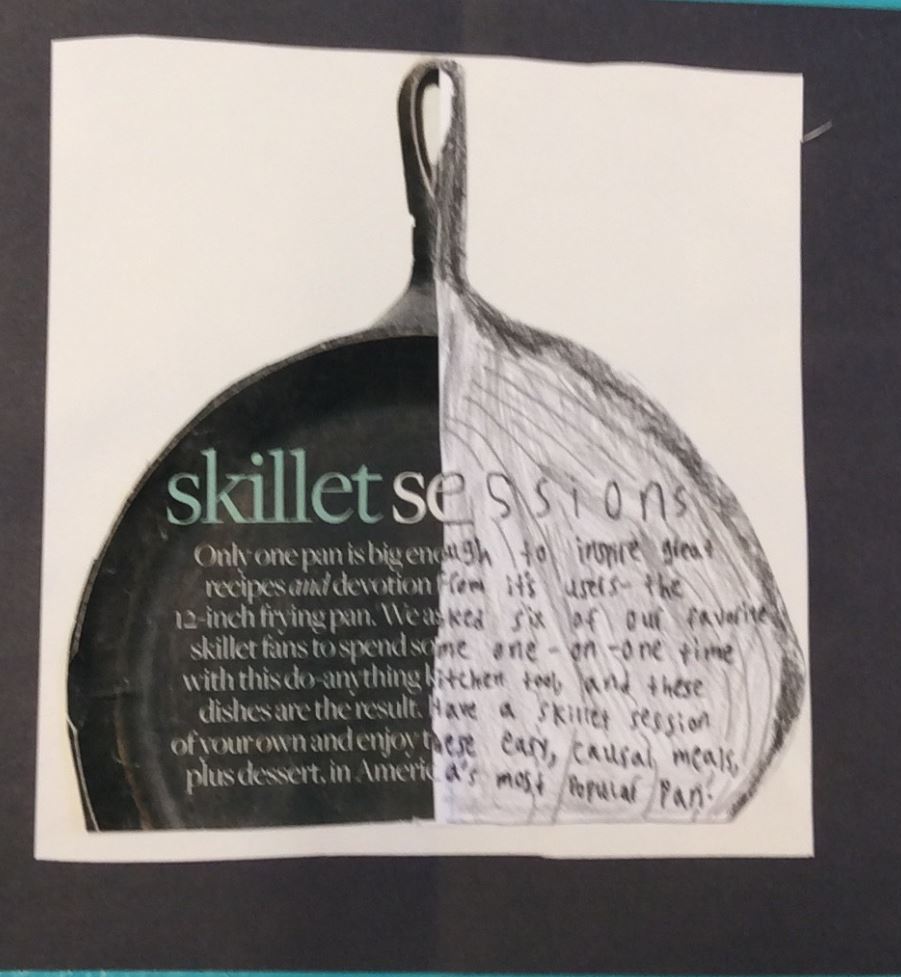 skillet sessions
Only one pan is big enough to inspire great
recipes and devotion from it's users- the
12-inch frying pan. We asked six of our favorite
skillet fans to spend some one-on-one time
with this do-anything kitchen tool, and these
dishes are the result. Have a skillet session
of your own and enjoy these easy, causal meals,
plus dessert, in America's most Popular Pan.